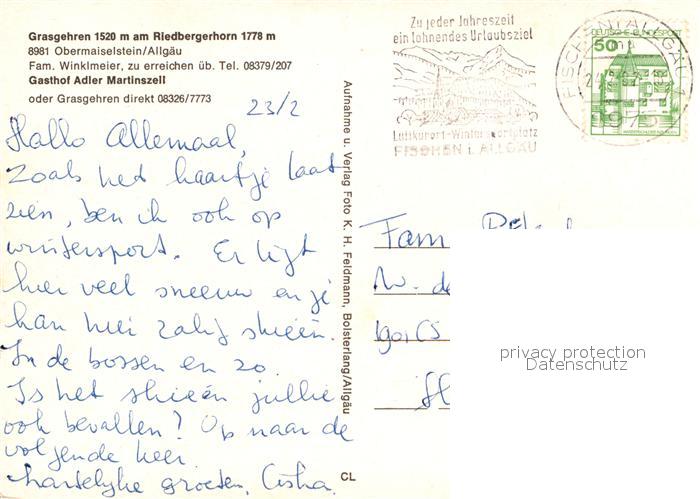 Grasgehren 1520 m am Riedbergerhorn 1778 m
8981 Obermaiselstein/Allgäu
Fam. Winklmeier, zu erreichen üb. Tel. 08379/207
Gasthof Adler Martinszell
oder Grasgehren direkt 08326/7773
23/2
Hallo Allemaal,
Zoals het kaartje laat
zien, ben ik ook op
wintersport. Er ligt
hier veel sneeuw en je
kan hier zalig skieën.
In de bossen en zo.
Is het skieën jullie
ook bevallen? Op naar de
volgende keer.
hartelijke groeten,
Aufnahme u. Verlag Foto K. H. Feldmann, Bolsterlang/Allgäu
CL
Zu jeder Jahreszeit
ein lohnendes Urlaubsziel
Luftkurort-Wintersportplatz
FISCHEN i. ALLGÄU
FISCHEN I ALLGÄU
8975
DEUTSCHE BUNDESPOST
50
Fam
privacy protection
Datenschutz